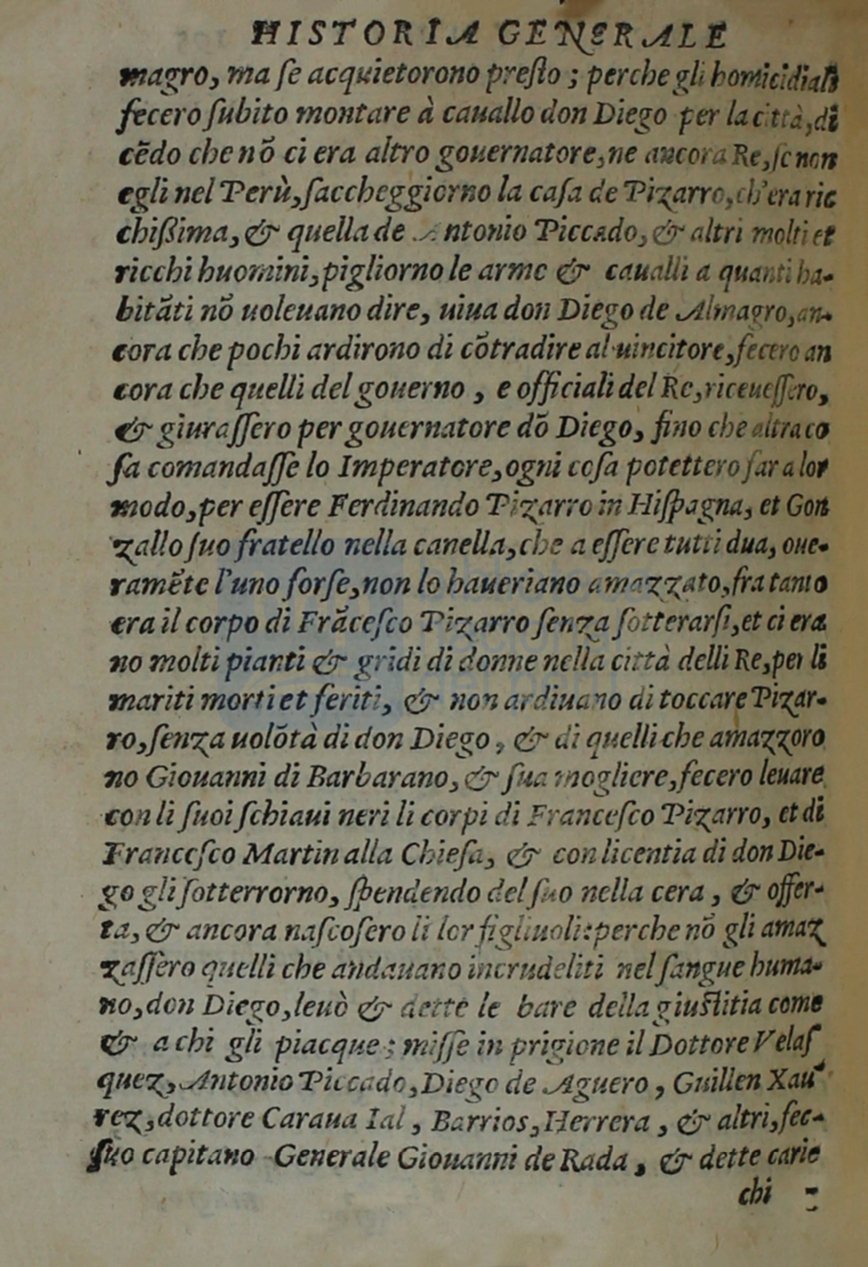 HISTORIA GENERALE
magro, ma ſe acquietorono preſto; perche gli homicidiali
fecero ſubito montare à cauallo don Diego per la città, di
cēdo che nō ci era altro gouernatore, ne ancora Re, ſe non
egli nel Perù, ſaccheggiorno la caſa de Pizarro, ch'era ric
chiſſima, & quella de Antonio Piccado, & altri molti et
ricchi huomini, pigliorno le arme & caualli a quanti ha-
bitāti nō uoleuano dire, uiua don Diego de Almagro, an-
cora che pochi ardirono di cōtradire al uincitore, fecero an
cora che quelli del gouerno, e officiali del Re, riceueſſero,
& giuraſſero per gouernatore dō Diego, fino che altra co
ſa comandaſſe lo Imperatore, ogni coſa potettero far a lor
modo, per eſſere Ferdinando Pizarro in Hiſpagna, et Gon
zallo ſuo fratello nella canella, che a eſſere tutti dua, oue-
ramēte l'uno forſe, non lo haueriano amazzato, fra tanto
era il corpo di Frāceſco Pizarro ſenza ſotterarſi, et ci era
no molti pianti & gridi di donne nella città delli Re, per li
mariti morti et feriti, & non ardiuano di toccare Pizar-
ro, ſenza uolōtà di don Diego, & di quelli che amazzoro
no Giouanni di Barbarano, & ſua mogliere, fecero leuare
con li ſuoi ſchiaui neri li corpi di Franceſco Pizarro, et di
Franceſco Martin alla Chieſa, & con licentia di don Die-
go gli ſotterrorno, ſpendendo del ſuo nella cera, & offer-
ta, & ancora naſcoſero li lor figliuoli: perche nō gli amaz
zaſſero quelli che andauano incrudeliti nel ſangue huma-
no, don Diego, leuò & dette le bare della giuſtitia come
& a chi gli piacque; miſſe in prigione il Dottore Velaſ
quez, Antonio Piccado, Diego de Aguero, Guillen Xau
rez, dottore Caraua Ial, Barrios, Herrera, & altri, fec-
ſuo capitano Generale Giouanni de Rada, & dette caric
chi -